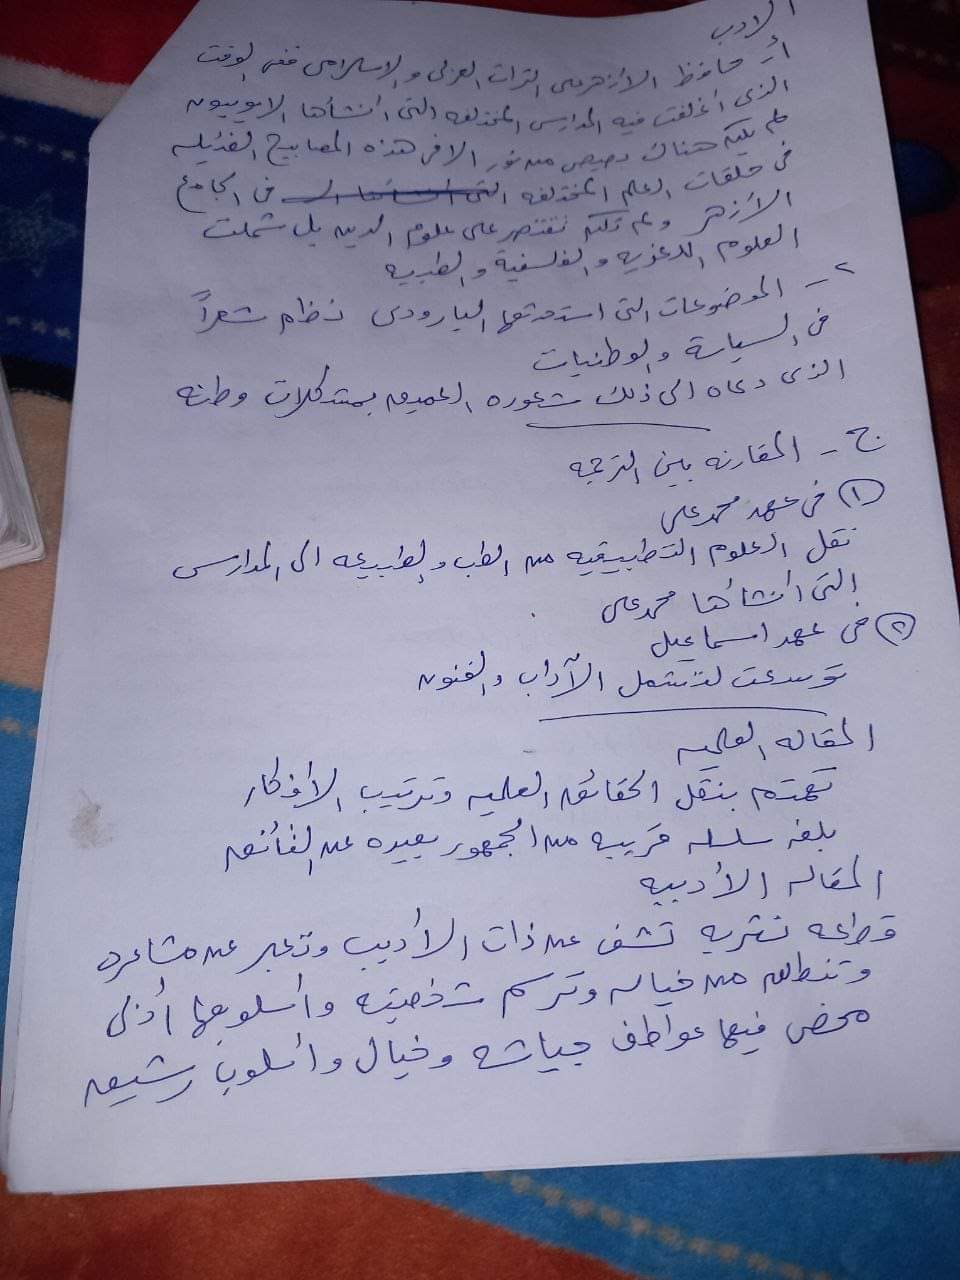 الادب
أ- حافظ الأزهر على التراث العربى والإسلامى ففى الوقت
الذى أغلقت فيه المدارس المختلفه التى أنشأها الايوبيون
لم يكن هناك بصيص من نور الا فى هذه المصابيح الضئيله
فى حلقات العلم المختلفه فى الجامع
الأزهر ولم تكن تقتصر على علوم الدين بل شملت
العلوم اللغويه والفلسفية والطبيه
٢- الموضوعات التى استحدثها البارودى نظم شعراً
فى السياسة والوطنيات
الذى دعاه الى ذلك شعوره العميق بمشكلات وطنه
ج- المقارنه بين الترجمه
١ فى عهد محمد على
نقل العلوم التطبيقيه من الطب والطبيعه الى المدارس
التى أنشأها محمد على
٢ فى عهد اسماعيل
توسعت لتشمل الآداب والفنون
المقاله العلميه
تهتم بنقل الحقائق العلميه وترتيب الأفكار
بلغه سلسله قريبه من الجمهور بعيده عن
المقاله الأدبيه
قطعه نثريه تشف عن ذات الأديب وتعبر عن مشاعره
وتنطلق من خياله وترسم شخصيته وأسلوبها أدبى
محض فيها عواطف جياشه وخيال وأسلوب رشيق